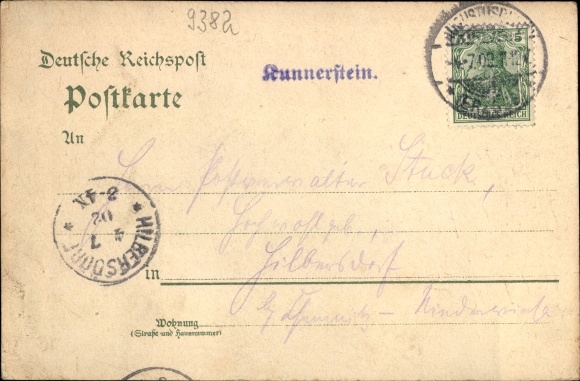 9382
Deutsche Reichspost
Kunnerstein.
Postkarte
5
DEUTSCHES REICH
An
Herrn Postverwalter Stuck,
2-4N
4 7 02
HILBERSDORF
Hochwohlgeb.
in Hilbersdorf
b/ Chemnitz –
Wohnung
(Straße und Hausnummer)